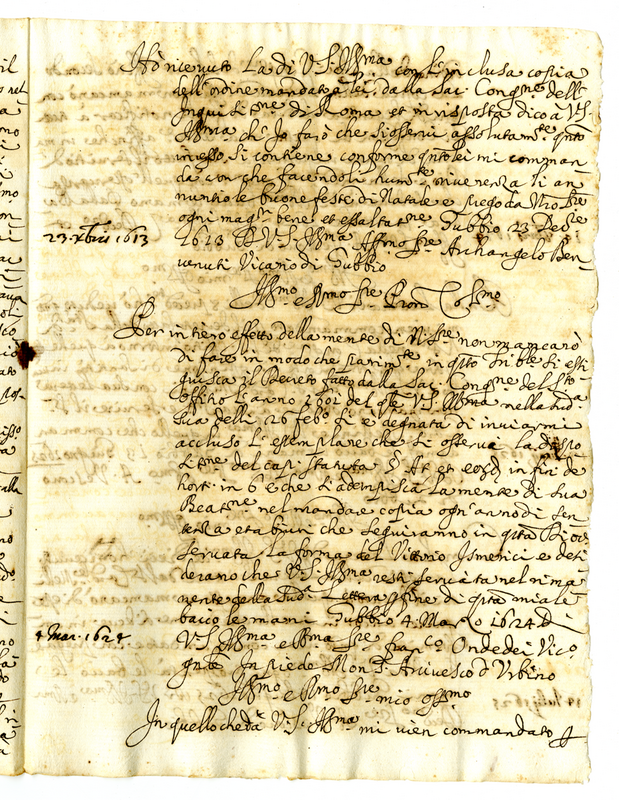 Hò riceuuto La di V. S. Illma con l'inclusa copia
dell'ordine mandato à lei dalla Sac. Congne dell'
Inquisitne di Roma et in risposta dico a V. S.
Illma ch'Io farò che si osserui assolutamte qnto
in esso si contiene conforme qnto lei mi comman-
da con che facendoli humte riuerenza li an
nuntio le buone feste di Natale e priego da Nro Sre
ogni magr bene et essaltatne Gubbio 23 Decre
23. xbris 1613
1613 D V. S. Illma Affmo Sre Archangelo Ben-
uenuti Vicario di Gubbio
Illmo e Rmo Sre Pron Colmo
Per intiero effetto della mente di N. Sre non mancarò
di fare in modo che parimte in qsto Trible si essi
quisca il Decreto fatto dalla Sac. Congne del Sto
Offitio l'anno 1601 del qle V. S. Illma nella
sua delli 26 febo si è degnata di inuiarmi
accluso l'essemplare che si osserua la dispo
sitne del cap. statuta
hort. in 6 e che si adempisca la mente di sua
Beatne nel mandare copia ogn'anno di sen
tenza et abiure che seguiranno in qsta
seruata la forma del Vittorio Ismerici e desi
derano che V. S. Illma resti seruita nel rima
nente della sudta Lettera
bacio le mani Gubbio 4. Marzo 1624 di
4 Mar. 1624
V. S. Illma e Rma Sre Franco Ondedei Vico
gnle In piede Mon. Arciuesco d'Vrbino
Illmo e Rmo Sre mio ossmo
In quello che da V. S. Illma mi vien commandato